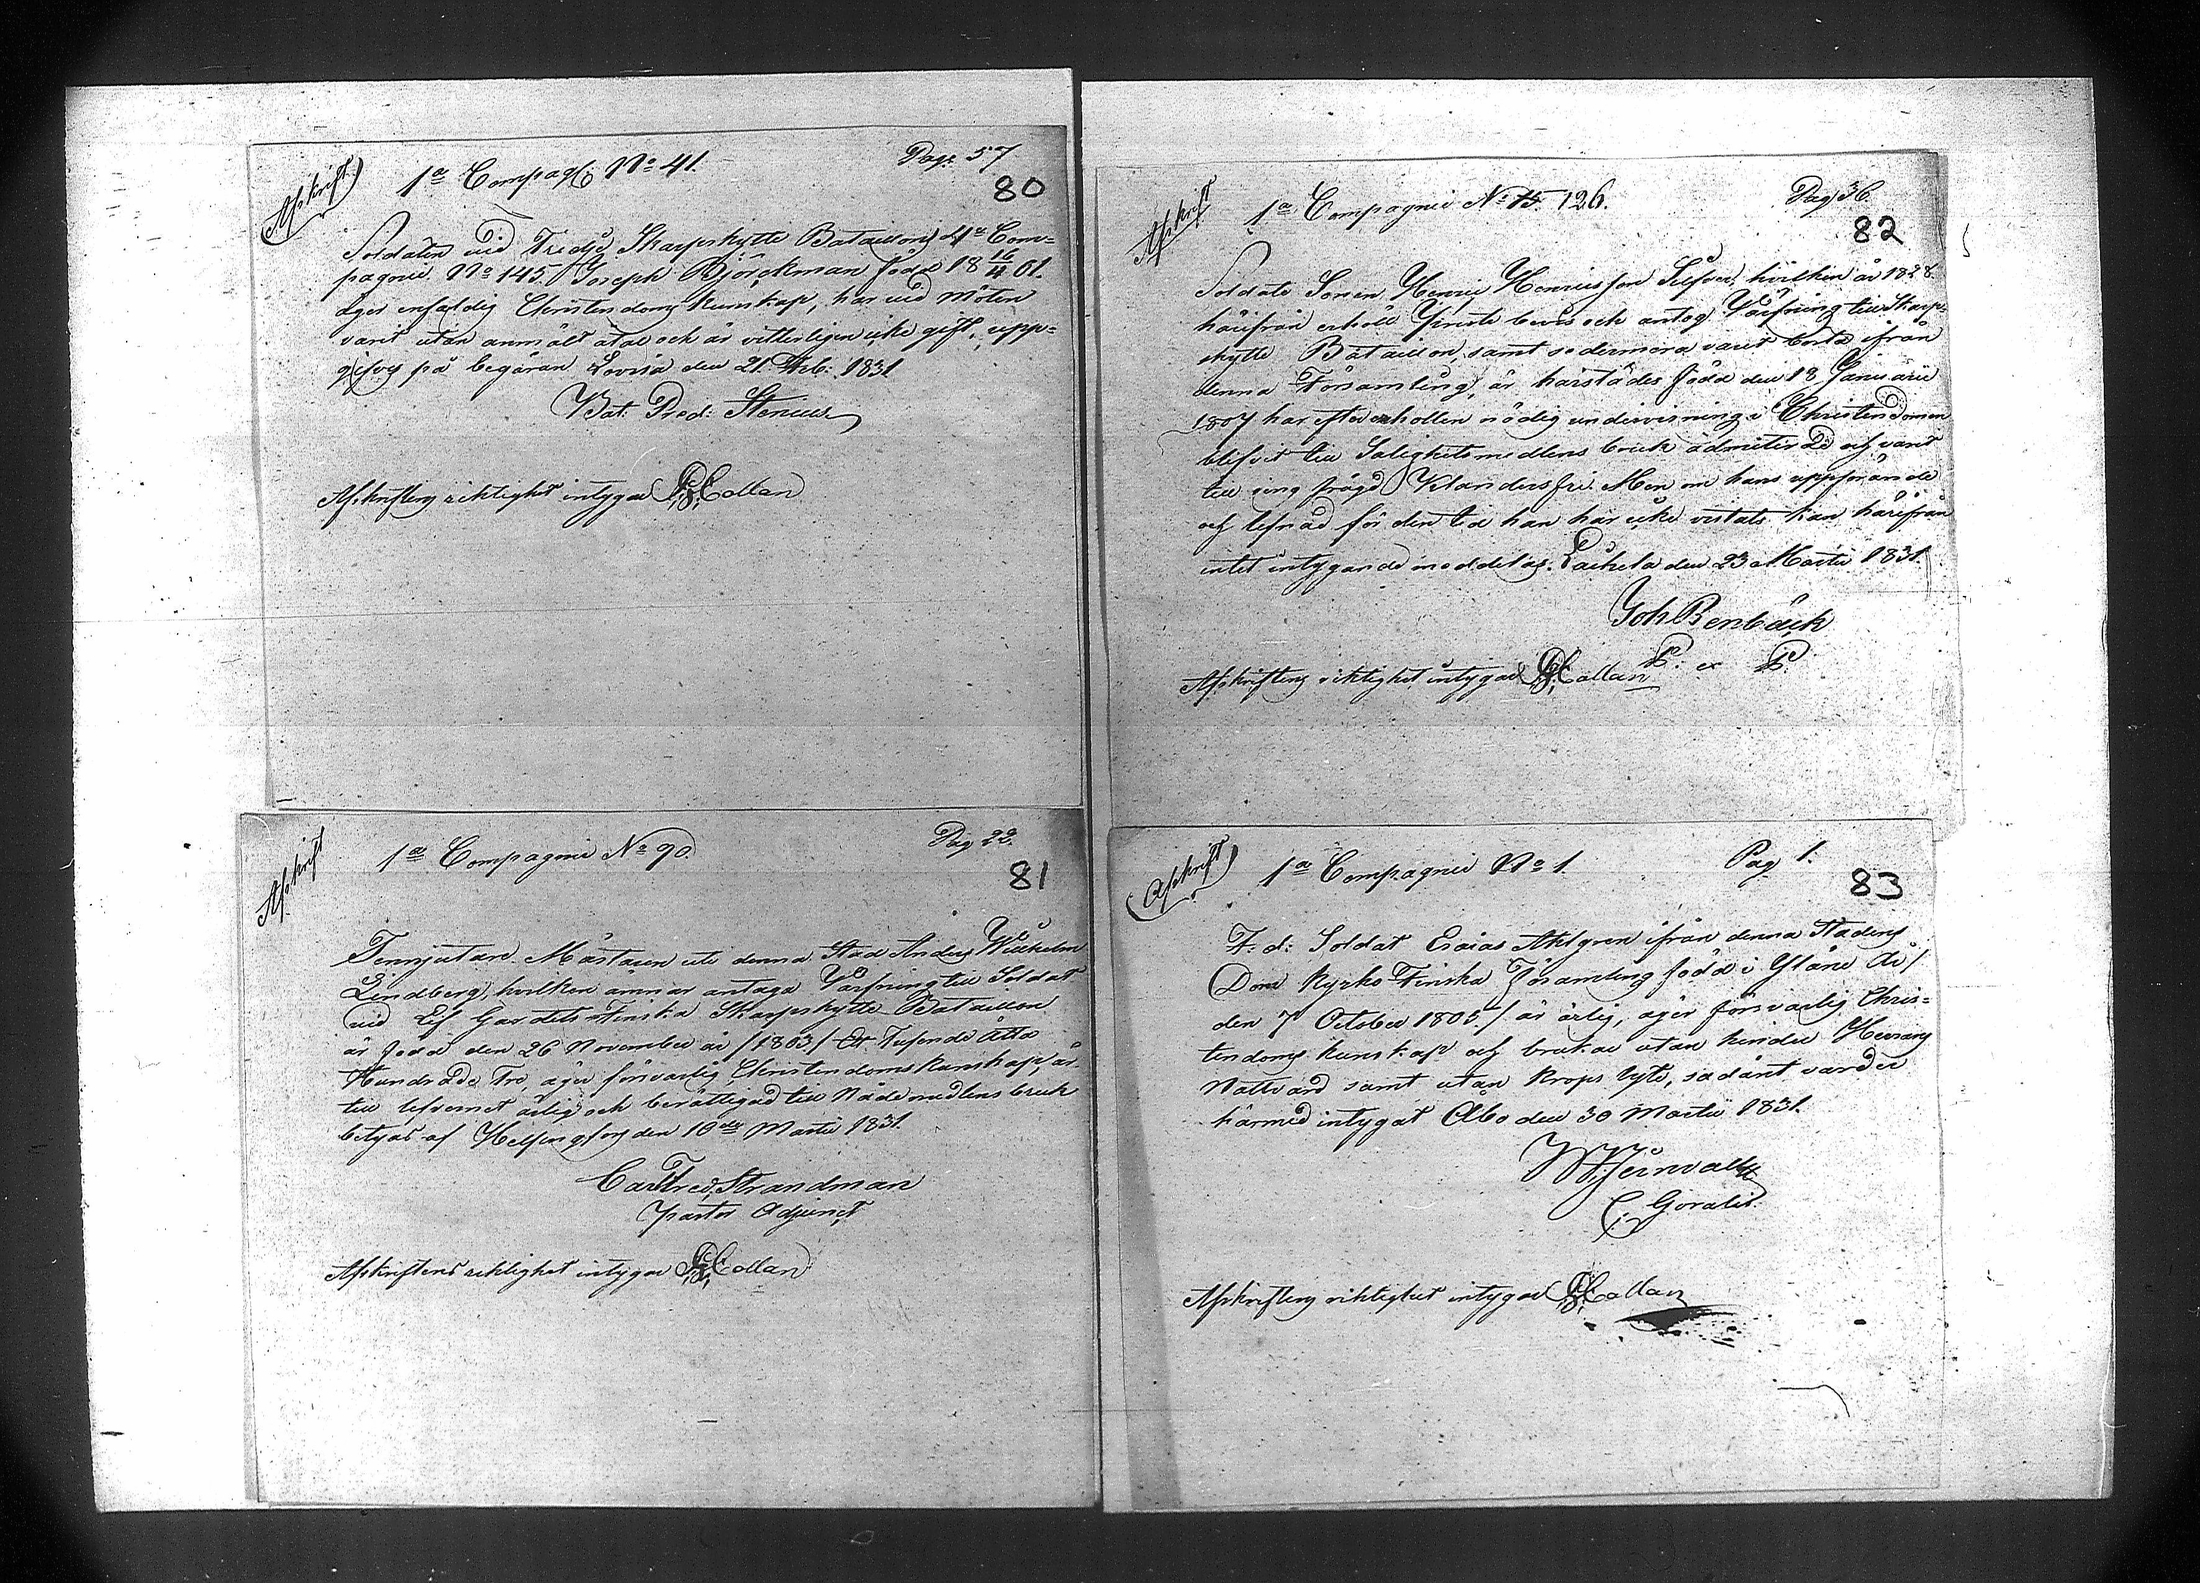 Afskrift
1a Compag: No 41.
Pag: 57
80
Soldaten vid Tredje Skarpskytte Bataillons 4de Com=
pagnie No 145. Joseph Björckman född 18 16/4 01.
äger enfaldig Christendoms kunskap, har vid Möten
varit utan anmält åtal och är vitterligen icke gift, upp=
gifves på begäran Lovisa den 21 Feb: 1831
Bat: Pred: Stenius
Afskriftens riktighet intygar Collan
Afskrift
1a Compagnie No 90.
Pag 22.
81
Tenngjutare Mästaren uti denna Stad Anders Wilhelm
Lindberg, hvilken ämnar antaga Värfning till Soldat
vid Lif Gardets Finska Skarpskytte Bataillon
är född den 26 November år /1803/ Ett Tusende Åtta
Hundrade Tre, äger försvarlig Christendomskunskap, är
till lefvernet ärlig och berättigad till Nådemedlens bruk
betygas af Helsingfors den 10de Martii 1831.
Carl Fred. Strandman
Pastor Adjunct
Afskriftens riktighet intygar Collan
Afskrift
1a Compagnie No 15. 126.
Pag 36.
82
Soldats Sonen Henric Henricsson Silfver, hvilken år 1828.
härifrån erhöll Prests bevis och antog Värfning till Skarp=
skytte Bataillon, samt sedermera varit borta ifrån
denna Församling, är härstädes född den 18 Januarii
1807 har efter erhållen nödig undervisning i Christendomen
blifvit till Salighetsmedlens bruk admitterad och varit
till sin frägd Klandersfri. Men om hans uppförande
och lefnad för den tid han här icke vistats kan härifrån
intet intygande meddelas. den 23 Martii 1831.
Joh Renbäck
P. P.
Afskriftens riktighet intygar Collan
Afskrift
1a Compagnie No 1.
Pag 1.
83
F. d: Soldat Esaias Ahlgren ifrån denna Stadens
Dom Kyrko Finska Församling född i Yläne år/
den 7 October 1805/ är ärlig, äger försvarlig Chris=
tendoms kunskap och brukar utan hinder Herrans
Nattvard samt utan Krops lyte, sådant varder
härmed intygat Åbo den 30 Martii 1831.
Afskriftens riktighet intygar Collan